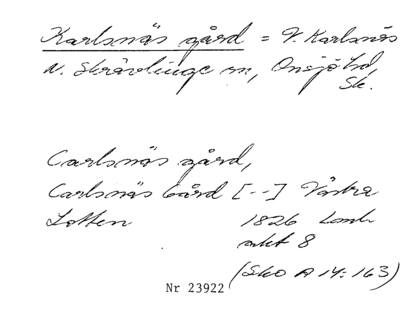 Karlsnäs gård = V. Karlsnäs
N. Skrävlinge sn, Onsjö hd,
Sk.
Carlsnäs gård,
Carlsnäs Gård [--] Västra
Lotten 1826 Lantm.
akt 8
(Sko A 14:163)
Nr 23922